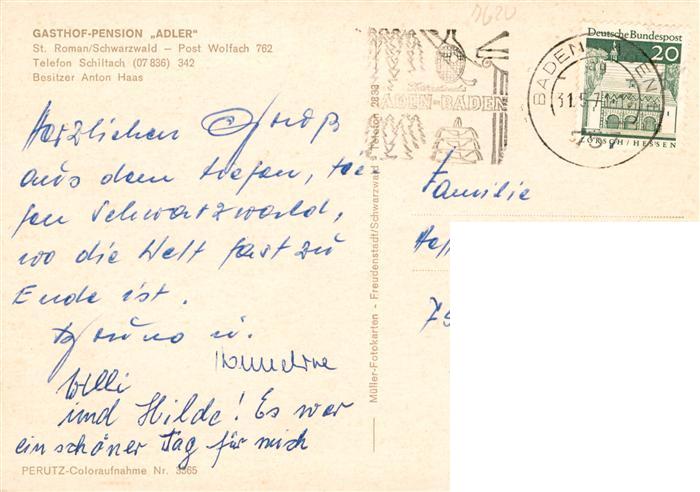 GASTHOF-PENSION „ADLER"
St. Roman/Schwarzwald – Post Wolfach 762
Telefon Schiltach (07 836) 342
Besitzer Anton Haas
Herzlichen Gruß
aus dem tiefen, tie
fen Schwarzwald,
wo die Welt fast zu
Ende ist.
Bruno u.
Willi
und Hilde! Es war
ein schöner Tag für mich
PERUTZ-Coloraufnahme Nr. 3365
Müller-Fotokarten - Freudenstadt/Schwarzwald - Telefon 2833
BADEN-BADEN
BADEN-BADEN
31.5.7
757
Deutsche Bundespost
20
LORSCH/HESSEN
Familie
75